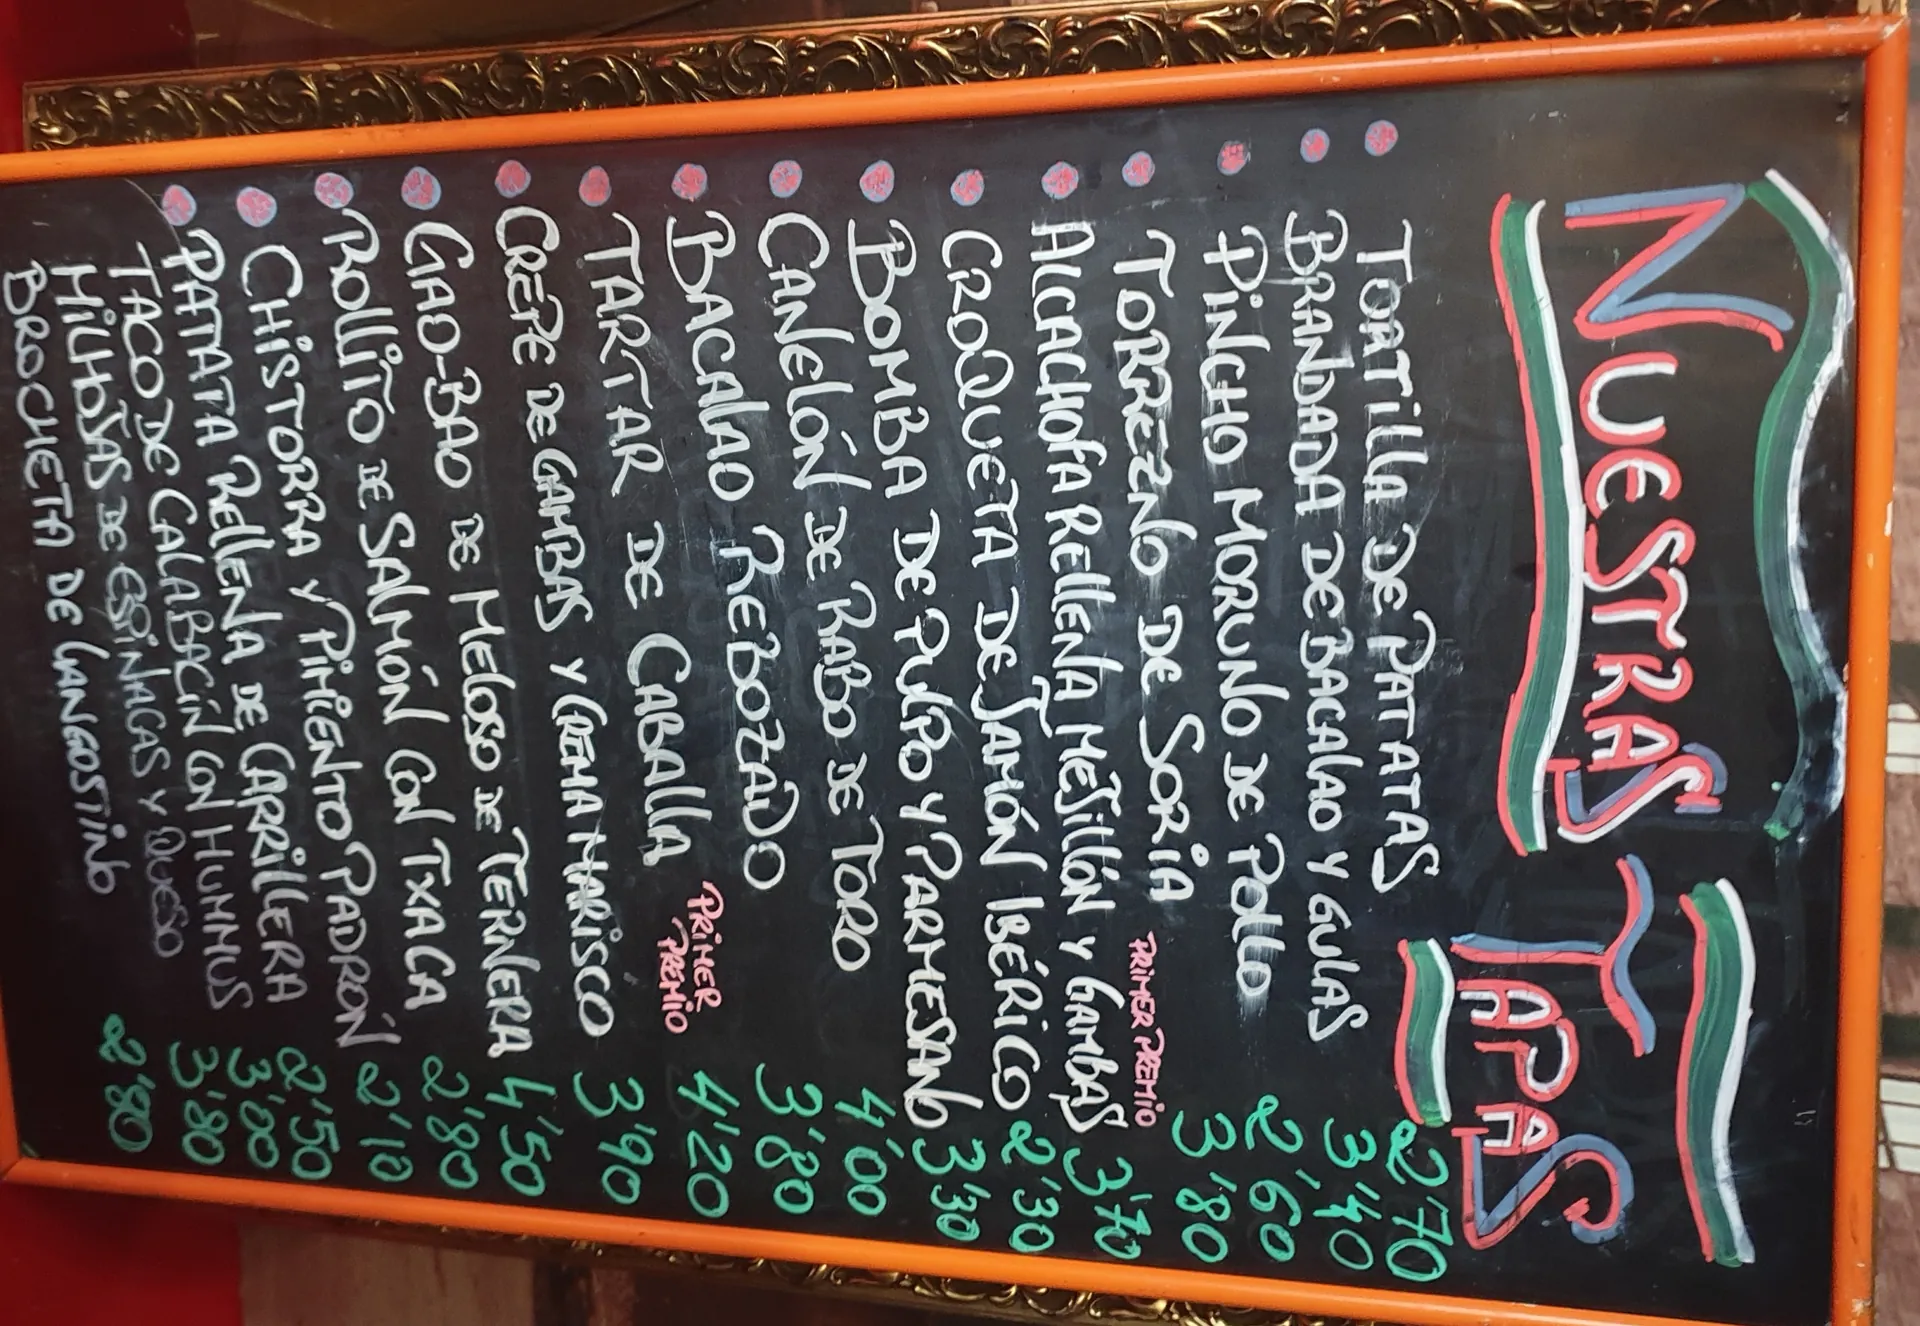 NUESTRAS TAPAS
TORTILLA DE PATATAS 2'70
BRANDADA DE BACALAO Y GULAS 3'40
PINCHO MORUNO DE POLLO 2'60
TORREZNO DE SORIA PRIMER PREMIO 3'80
ALCACHOFA RELLENA MEJILLÓN Y GAMBAS 3'70
CROQUETA DE JAMÓN IBÉRICO 2'30
BOMBA DE PULPO Y PARMESANO 3'30
CANELÓN DE RABO DE TORO 4'00
BACALAO REBOZADO 3'80
TARTAR DE CABALLA PRIMER PREMIO 4'20
CREPE DE GAMBAS Y CREMA MARISCO 3'90
GAO-BAO DE MELOSO DE TERNERA 4'50
ROLLITO DE SALMÓN CON TXACA 2'80
CHISTORRA Y PIMIENTO PADRÓN 2'10
PATATA RELLENA DE CARRILLERA 2'50
TACO DE CALABACÍN CON HUMMUS 3'00
MILHOJAS DE ESPINACAS Y QUESO 3'80
BROCHETA DE LANGOSTINO 2'80